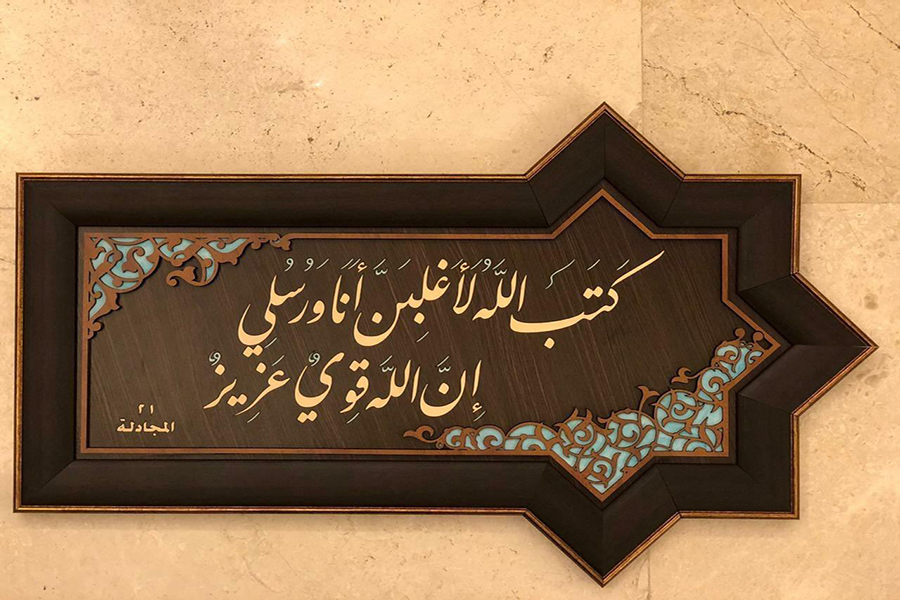 كَتَبَ اللَّهُ لَأَغْلِبَنَّ أَنَا وَرُسُلِي
إِنَّ اللَّهَ قَوِيٌّ عَزِيزٌ
٢١
المجادلة